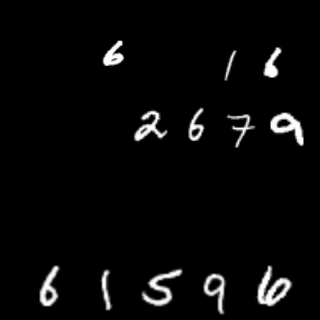 6 1 6
2 6 7 9
6 1 5 9 6